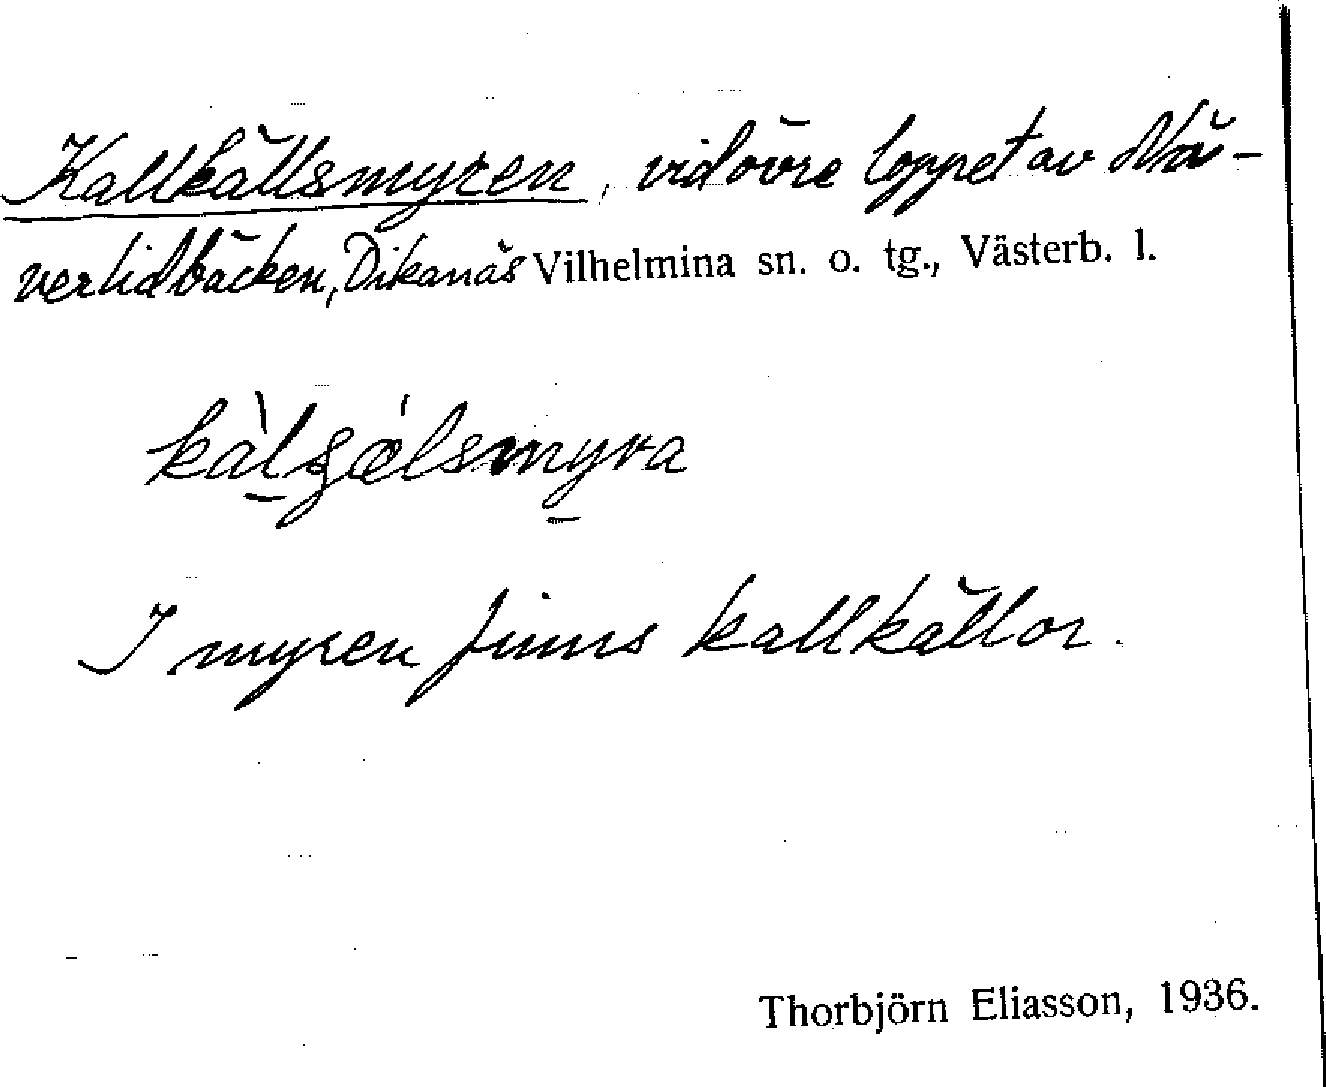 Kallkällsmyren, vid övre loppet av Nä-
verlidbäcken, Dikanäs Vilhelmina sn. o. tg., Västerb. l.
I myren finns kallkällor.
Thorbjörn Eliasson, 1936.